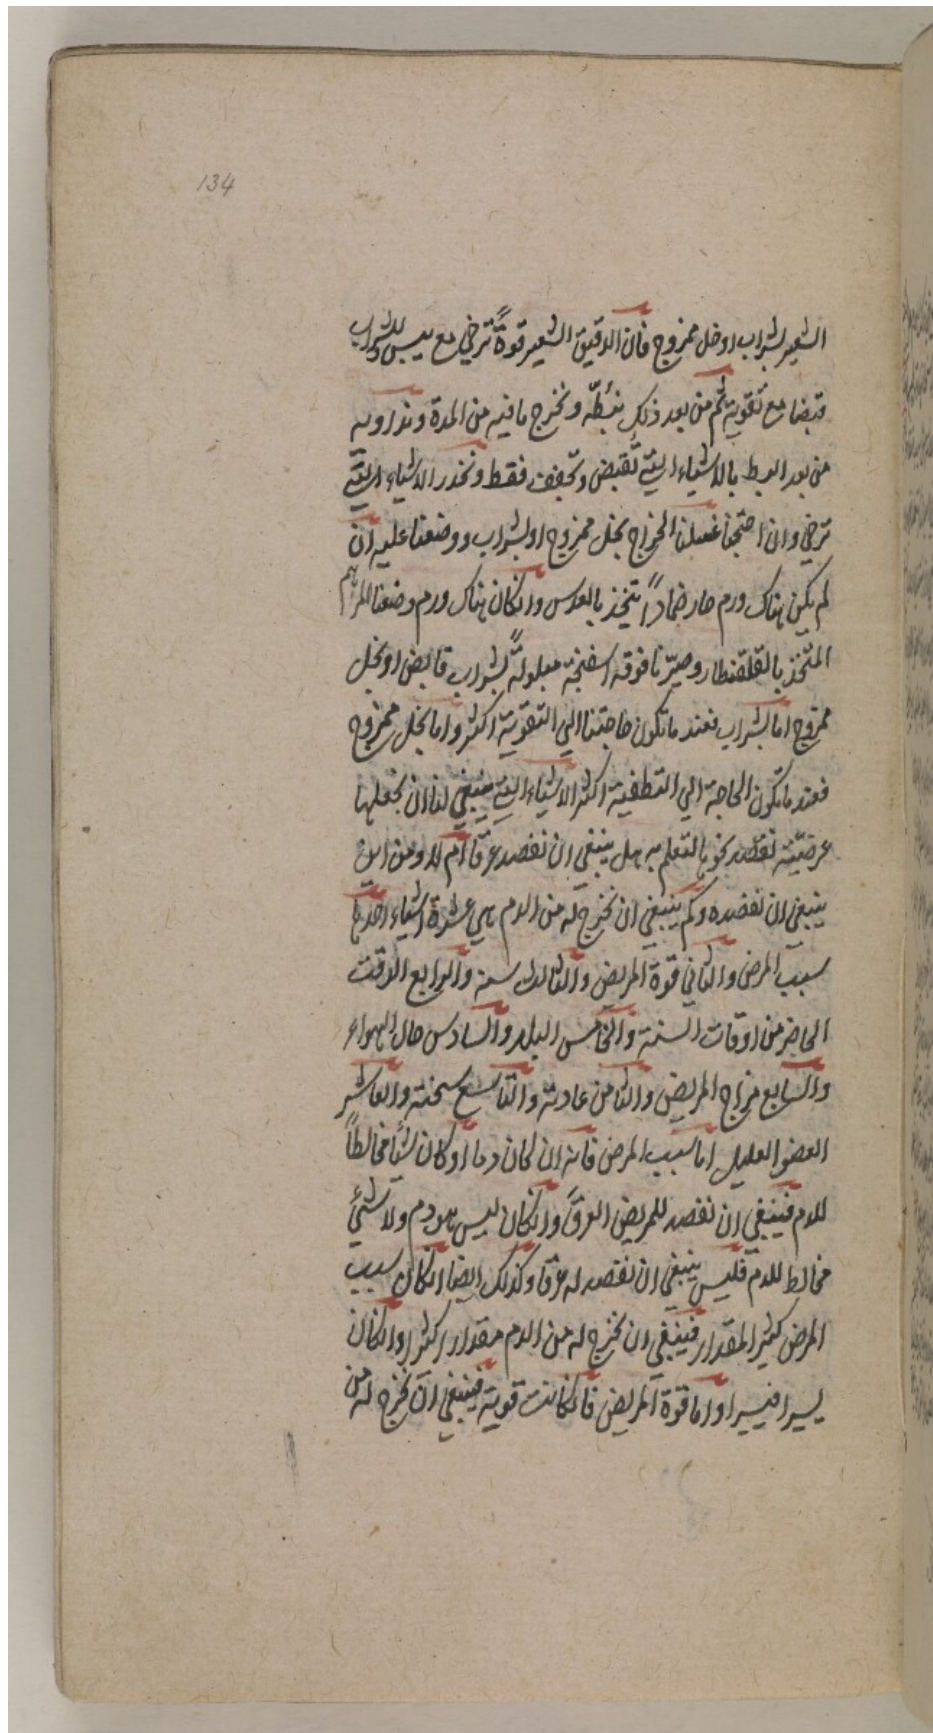 134
الشعير بشراب او خل ممزوج فان الدقيق الشعير قوةً ترخي مع يبس وللشراب
قبضا مع تقوية ثم من بعد ذلك نبطّه ونخرج ما فيه من المدة ونداويه
من بعد البط بالاشياء التي تقبض وتجفف فقط ونحذر الاشياء التي
ترخي وان احتجنا غسلنا الخراج بخل ممزوج او بشراب ووضعنا عليه ان
لم يكن هناك ورم حار ضماداً يتخذ بالعدس وان كان هناك ورم وضعنا المرهم
المتخذ بالقلقطار وصيّرنا فوقه اسفنجة مبلولةً بشراب قابض او بخل
ممزوج اما بشراب فعند ما تكون حاجتنا الي التقوية اكثر واما بخل ممزوج
فعند ما تكون الحاجة الي التطفية اكثر الاشياء التي ينبغي لنا ان نجعلها
عرضيّة نقصد نحوها لتعلم به هل ينبغي ان نفصد عرقا ام لا ومن اين
ينبغي ان نفصده وكم ينبغي ان نخرج له من الدم هي عشرة اشياء احدها
سبب المرض والثاني قوة المريض والثالث سنه والرابع الوقت
الحاضر من اوقات السنة والخامس البلد والسادس حال الهواء
والسابع مزاج المريض والثامن عادته والتاسع سحنته والعاشر
العضو العليل اما سبب المرض فانه ان كان دما او كان شيًا مخالطاً
للدم فينبغي ان نفصد للمريض العرق وان كان ليس هو دم ولا شيئ
مخالط للدم فليس ينبغي ان نفصد له عرقا وكذلك ايضا ان كان سبب
المرض كثير المقدار فينبغي ان نخرج له من الدم مقدار اكثر وان كان
يسيرا فيسيرا واما قوة المريض فان كانت قوية فينبغي ان نخرج له من